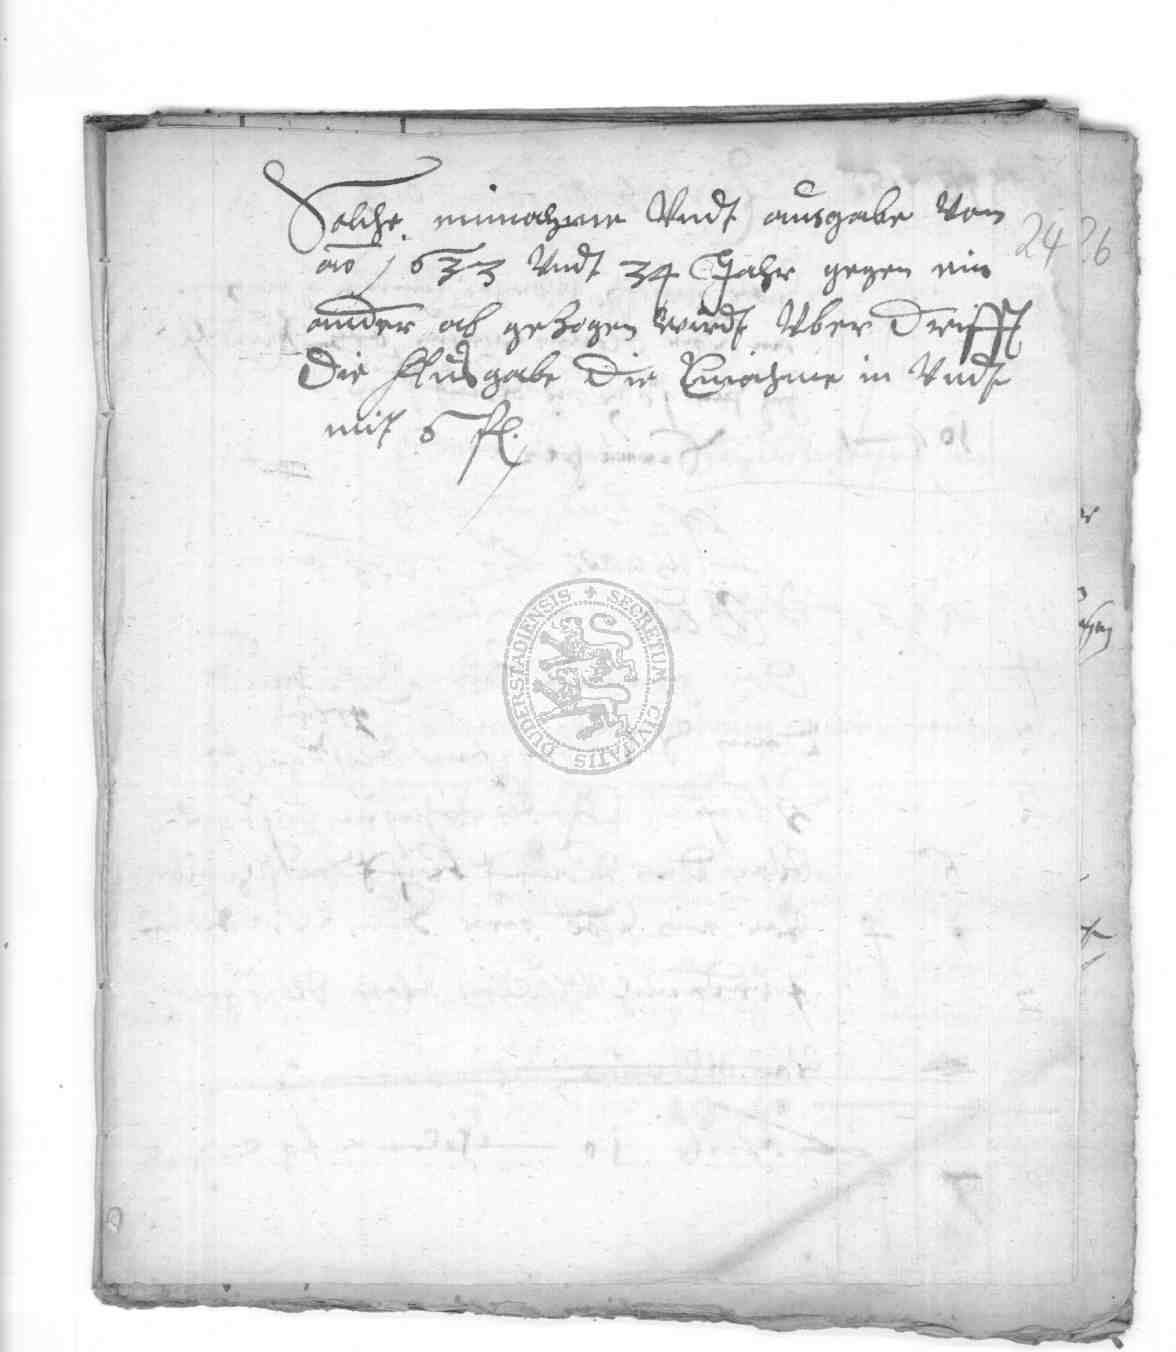 Solche einnahme Vndt ausgabe Von
ao 1633 Vndt 34 Jahr gegen ein
ander ab gezogen wirdt Vber Drifft
Die Ausgabe Die Einahme in Vndt
mit 6 fl.
24
26
SECRETUM CIVITATIS DUDERSTADIENSIS